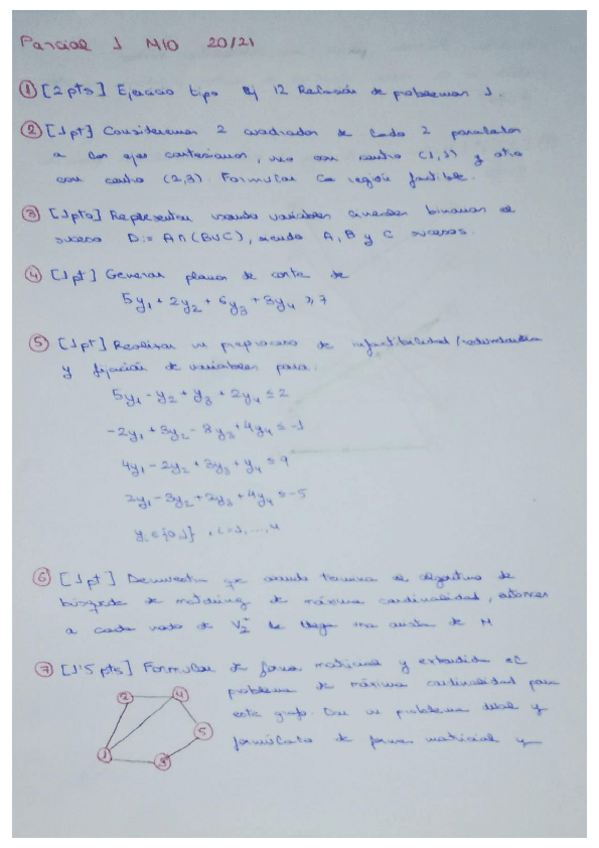 Parcial 1 MIO 20/21
① [2 pts] Ejercicio tipo ej 12 Relación de problemas 1.
② [1pt] Consideremos 2 cuadrados de lado 2 paralelos
a los ejes cartesianos, uno con centro (1,1) y otro
con centro (2,3). Formular la región factible.
③ [1pto] Representar usando variables binarias el
suceso D:= A∩(B∪C), siendo A, B y C sucesos.
④ [1pt] Generar planos de corte de
5y₁ + 2y₂ + 6y₃ + 8y₄ ≥ 7
⑤ [1pt] Realizar un preproceso de infactibilidad/redundancia
y fijación de variables para:
5y₁ - y₂ + y₃ + 2y₄ ≤ 2
-2y₁ + 3y₂ - 8y₃ + 4y₄ ≤ -1
4y₁ - 2y₂ + 3y₃ + y₄ ≤ 9
2y₁ - 3y₂ + 2y₃ + 4y₄ ≤ -5
yᵢ ∈ {0,1}, i=1,...,4
⑥ [1pt] Demuestra que cuando termina el algoritmo de
búsqueda de matching de máxima cardinalidad, entonces
a cada nodo de V₂⁺ le llega una arista de M
⑦ [1'5 pts] Formular de forma matricial y extendida el
problema de máxima cardinalidad para
este grafo. Dar su problema dual y
formúlalo de forma matricial y
2 4
5
1 3